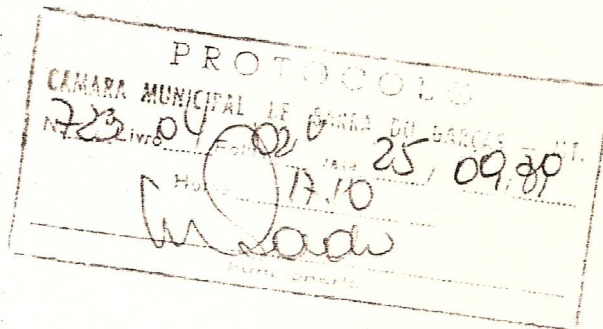 PROTOCOLO
CAMARA MUNICIPAL DE BARRA DO GARÇAS - MT.
Nº 723 Livro 04 Folha 02 V Data 25 / 09, 89
Hora 17.10
Funcionário